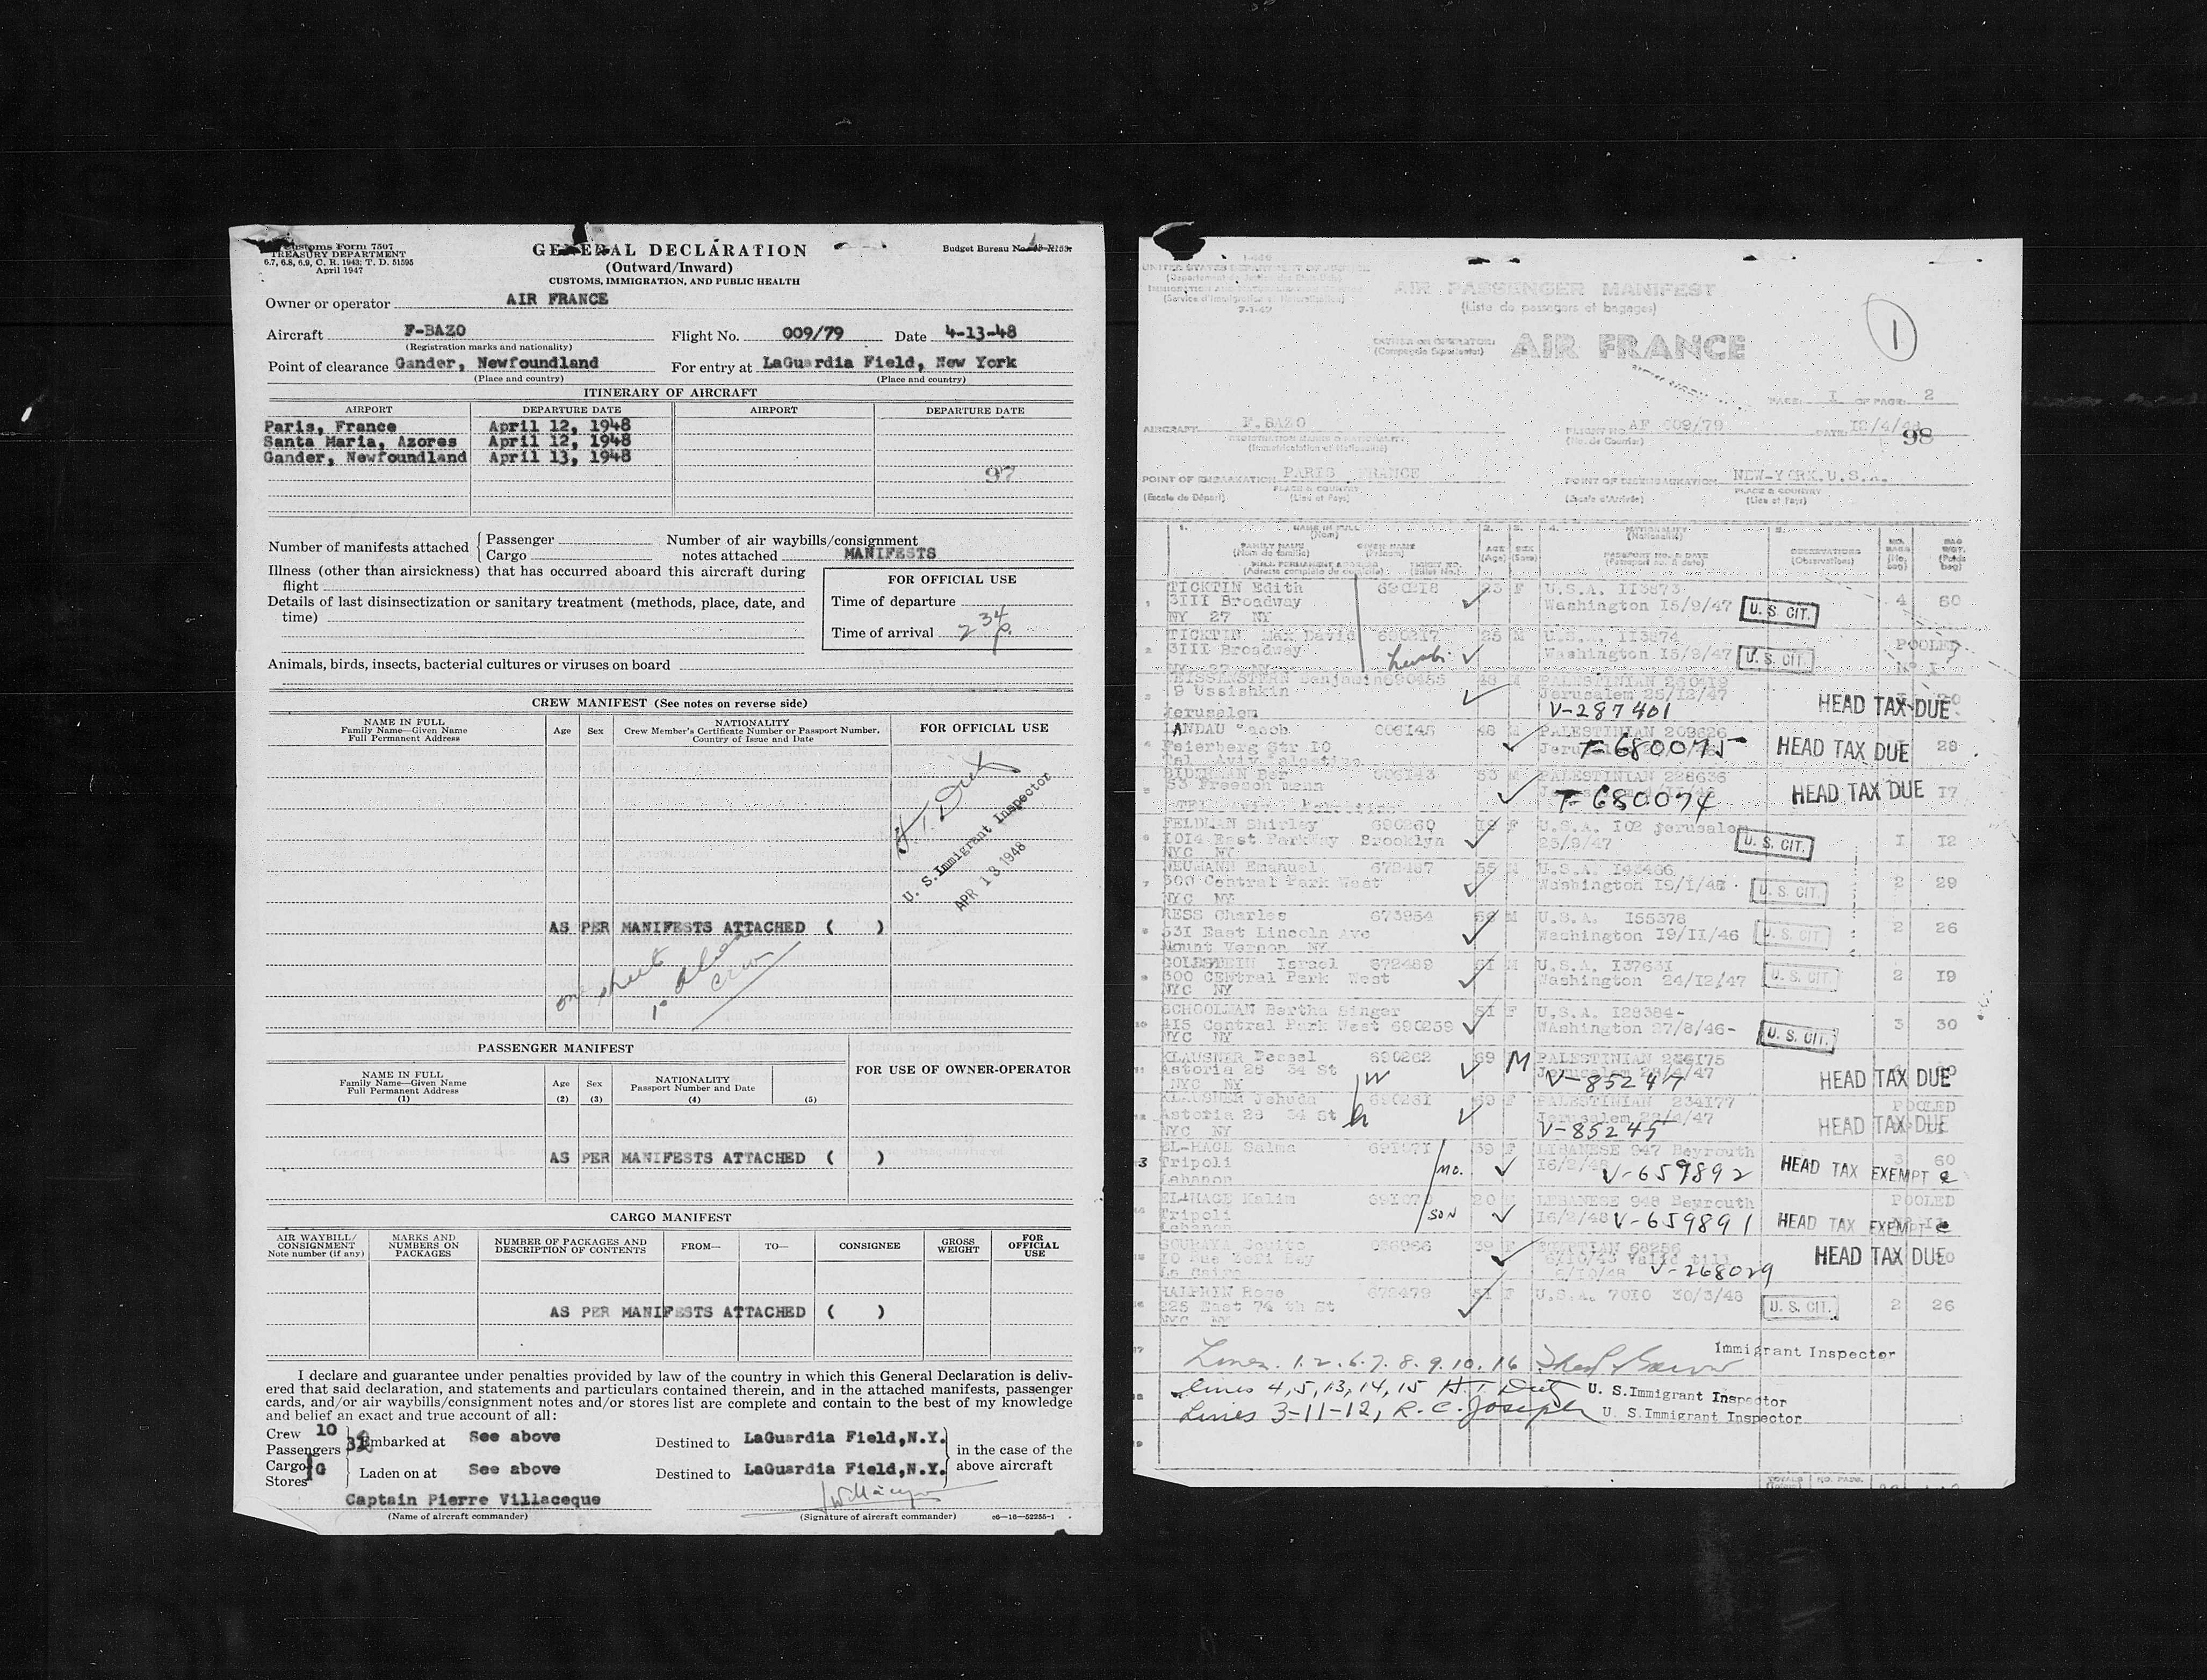 Customs Form 7507
TREASURY DEPARTMENT
6.7, 6.8, 6.9, C. R. 1943; T. D. 51595
April 1947
GENERAL DECLARATION
(Outward/Inward)
CUSTOMS, IMMIGRATION, AND PUBLIC HEALTH
Budget Bureau No.
Owner or operator AIR FRANCE
Aircraft F-BAZO Flight No. 009/79 Date 4-13-48
(Registration marks and nationality)
Point of clearance Gander, Newfoundland For entry at LaGuardia Field, New York
(Place and country) (Place and country)
ITINERARY OF AIRCRAFT
AIRPORT DEPARTURE DATE AIRPORT DEPARTURE DATE
Paris, France April 12, 1948
Santa Maria, Azores April 12, 1948
Gander, Newfoundland April 13, 1948
97
Number of manifests attached Passenger Cargo
Number of air waybills/consignment notes attached MANIFESTS
Illness (other than airsickness) that has occurred aboard this aircraft during
flight
Details of last disinsectization or sanitary treatment (methods, place, date, and
time)
FOR OFFICIAL USE
Time of departure
Time of arrival 2 34 P.
Animals, birds, insects, bacterial cultures or viruses on board
CREW MANIFEST (See notes on reverse side)
NAME IN FULL
Family Name—Given Name
Full Permanent Address
Age Sex
NATIONALITY
Crew Member's Certificate Number or Passport Number,
Country of Issue and Date
FOR OFFICIAL USE
U. S. Immigrant Inspector
APR 13 1948
AS PER MANIFESTS ATTACHED ( )
one sheet
10 alien
crew
PASSENGER MANIFEST
FOR USE OF OWNER-OPERATOR
NAME IN FULL
Family Name—Given Name
Full Permanent Address
(1)
Age
(2)
Sex
(3)
NATIONALITY
Passport Number and Date
(4)
(5)
AS PER MANIFESTS ATTACHED ( )
CARGO MANIFEST
AIR WAYBILL/
CONSIGNMENT
Note number (if any)
MARKS AND
NUMBERS ON
PACKAGES
NUMBER OF PACKAGES AND
DESCRIPTION OF CONTENTS
FROM—
TO—
CONSIGNEE
GROSS
WEIGHT
FOR
OFFICIAL
USE
AS PER MANIFESTS ATTACHED ( )
I declare and guarantee under penalties provided by law of the country in which this General Declaration is deliv-
ered that said declaration, and statements and particulars contained therein, and in the attached manifests, passenger
cards, and/or air waybills/consignment notes and/or stores list are complete and contain to the best of my knowledge
and belief an exact and true account of all:
Crew 10
Passengers
Cargo
Stores
Embarked at See above Destined to LaGuardia Field,N.Y.
Laden on at See above Destined to LaGuardia Field,N.Y.
in the case of the
above aircraft
Captain Pierre Villaceque
(Name of aircraft commander) (Signature of aircraft commander) c6—16—52255-1
UNITED STATES DEPARTMENT OF JUSTICE
7-1-47
AIR PASSENGER MANIFEST
(Liste de passagers et bagages)
1
OWNER OR OPERATOR:
AIR FRANCE
PAGE: I OF PAGE: 2
AIRCRAFT F.BAZO FLIGHT NO. AF 009/79 DATE: 12/4/48
98
POINT OF EMBARKATION PARIS FRANCE NEW-YORK.U.S.A.
(Escale de Départ) PLACE & COUNTRY (Lieu et Pays) (Escale d'Arrivée) PLACE & COUNTRY (Lieu et Pays)
NAME IN FULL
(Nom)
FAMILY NAME GIVEN NAME
(Nom de famille) (Prénom)
AGE (Age) SEX (Sexe)
NATIONALITY
(Nationalité)
PASSPORT NO. & DATE
OBSERVATIONS
(Observations)
1 TICKTIN Edith 690218 23 F U.S.A. II3873
3III Broadway Washington I5/9/47 U. S. CIT. 4 60
NY 27 NY
2 TICKTIN Max David 690217 25 M U.S.A. II3874 POOLED
3III Broadway Washington I5/9/47 U. S. CIT. N° I
NY 27 NY
3 Benjamin 690455 48 M PALESTINIAN 260419
9 Ussishkin Jerusalem 25/12/47
Jerusalem V-287401 HEAD TAX DUE
4 LANDAU Jacob 006145 48 M PALESTINIAN 209626
Feierberg Str 10 T-680075 HEAD TAX DUE 28
Tel Aviv Palestine
5 Ber 006143 53 M PALESTINIAN 228636
T-680074 HEAD TAX DUE I7
6 FELDMAN Shirley 690260 19 F U.S.A. I02 Jerusalem
IOI4 East Parkway Brooklyn 23/9/47 U. S. CIT. I I2
NYC NY
7 NEUMANN Emanuel 672487 55 M U.S.A. I43466
300 Central Park West Washington I9/I/48 U. S. CIT. 2 29
NYC NY
8 RESS Charles 673954 66 M U.S.A. I55378
531 East Lincoln Ave Washington I9/II/46 U. S. CIT. 2 26
Mount Vernon NY
9 GOLDSTEIN Israel 672489 5I M U.S.A. I3763I
300 CENtral Park West Washington 24/I2/47 U. S. CIT. 2 I9
NYC NY
10 SCHOOLMAN Bertha Singer 5I F U.S.A. I28384-
4I5 Central Park West 690259 WAshington 27/8/46- U. S. CIT. 3 30
NYC NY
11 KLAUSNER Pessel 690262 69 M PALESTINIAN 234I75
Astoria 28 34 St W Jerusalem 22/4/47
NYC NY V-85247 HEAD TAX DUE
12 KLAUSNER Jehuda 690261 60 F PALESTINIAN 234I77 POOLED
Astoria 28 34 St h Jerusalem 22/4/47
NYC NY V-85245 HEAD TAX DUE
3 EL-HAGE Salma 69I07I 39 F LIBANESE 947 Beyrouth 60
Tripoli Mo. I6/2/48 V-659892 HEAD TAX EXEMPT e
Lebanon
14 EL-HAGE Kalim 69I070 20 M LEBANESE 948 Beyrouth POOLED
Tripoli SON I6/2/48 V-659891 HEAD TAX EXEMPT e
Lebanon
15 39 F Valid till
V-268029 HEAD TAX DUE
16 HALPRIN Rose 672479 5I F U.S.A. 70I0 30/3/48
225 East 74 th St U. S. CIT. 2 26
NYC NY
Immigrant Inspector
Lines. 1. 2. 6. 7. 8. 9. 10. 16
Lines 4, 5, 13, 14, 15 U. S. Immigrant Inspector
Lines 3-11-12, R. C. Joseph U. S. Immigrant Inspector